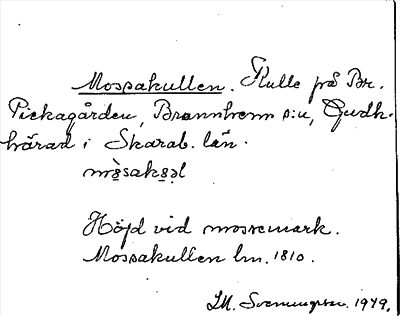 Mossakullen. Kulle på Br.
Pickagården, Brunnhem s:n, Gudh.
härad i Skarab. län.
Höjd vid mossemark.
Mossakullen lm. 1810.
Svenungsson 1949.